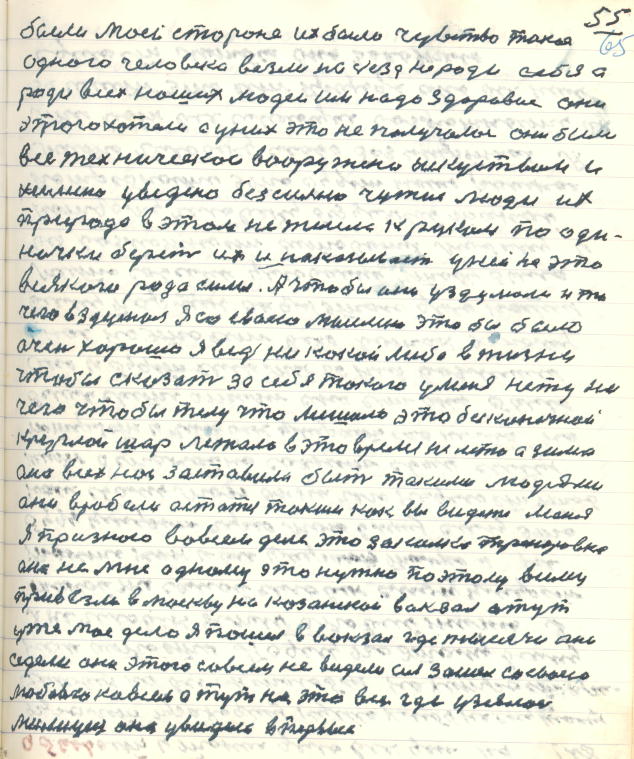 55
65
были моей стороне их было чувство такое
одного человека везли на съезд не ради себя а
ради всех наших людей им надо здоровие они
этого хотели а у них это не получалос они были
все техническое вооружено искуством и
химино уведено безсильно чужия люди их
природа в этом не жила к рукам по оди-
ночки берет их и наказывает у ней на это
всякого рода силы. А чтобы они уздумали и то
чего вздумал я со своею мыслию это бы было
очен хорошо я вед ни какой либо в жизни
чтобы сказат за себя такого у меня нету ни
чего чтобы телу что мишало это бесконочной
круглой шар летало в это время не лето а зима
она всех нас заставила быть такими людями
они вробели астатся таким как вы видите меня
Я признаю вовсем деле это закалка тренровка
она не мне одному это нужно поэтому в зиму
привезли в москву на казанской вакзал а тут
уже мое дело я пошел в вокзал где тысячи они
седели они этого совсем не видели а я зашел со своею
любовю ко всем а тут на это все где узялас
милиция она увидела впервые